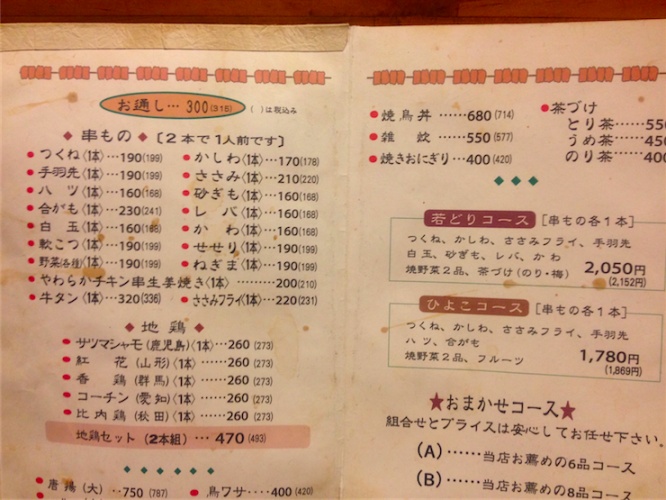 お通し…300(315) ( )は税込み
◆ 串もの ◆ 〔2本で1人前です〕
● つくね〈1本〉…190(199)
● 手羽先〈1本〉…190(199)
● ハツ〈1本〉…160(168)
● 合がも〈1本〉…230(241)
● 白玉〈1本〉…160(168)
● 軟こつ〈1本〉…190(199)
● 野菜(各種)〈1本〉…190(199)
● かしわ〈1本〉…170(178)
● ささみ〈1本〉…210(220)
● 砂ぎも〈1本〉…160(168)
● レバ〈1本〉…160(168)
● かわ〈1本〉…160(168)
● せせり〈1本〉…190(199)
● ねぎま〈1本〉…190(199)
● やわらかチキン串生姜焼き〈1本〉………200(210)
● 牛タン〈1本〉…320(336)
● ささみフライ〈1本〉…220(231)
◆ 地鶏 ◆
● サツマシャモ(鹿児島)〈1本〉…260(273)
● 紅花(山形)〈1本〉…260(273)
● 香鶏(群馬)〈1本〉…260(273)
● コーチン(愛知)〈1本〉…260(273)
● 比内鶏(秋田)〈1本〉…260(273)
地鶏セット(2本組)… 470(493)
● 唐揚(大)…750(787)
● 鳥ワサ…400(420)
● 焼鳥丼……680(714)
● 雑炊……550(577)
● 焼きおにぎり…400(420)
● 茶づけ
とり茶……550
うめ茶……450
のり茶……400
若どりコース [串もの各1本]
つくね、かしわ、ささみフライ、手羽先
白玉、砂ぎも、レバ、かわ
焼野菜2品、茶づけ(のり・梅)
2,050円
(2,152円)
ひよこコース [串もの各1本]
つくね、かしわ、ささみフライ、手羽先
ハツ、合がも
焼野菜2品、フルーツ
1,780円
(1,869円)
★おまかせコース★
組合せとプライスは安心してお任せ下さい。
(A)……当店お薦めの6品コース
(B)……当店お薦めの8品コース